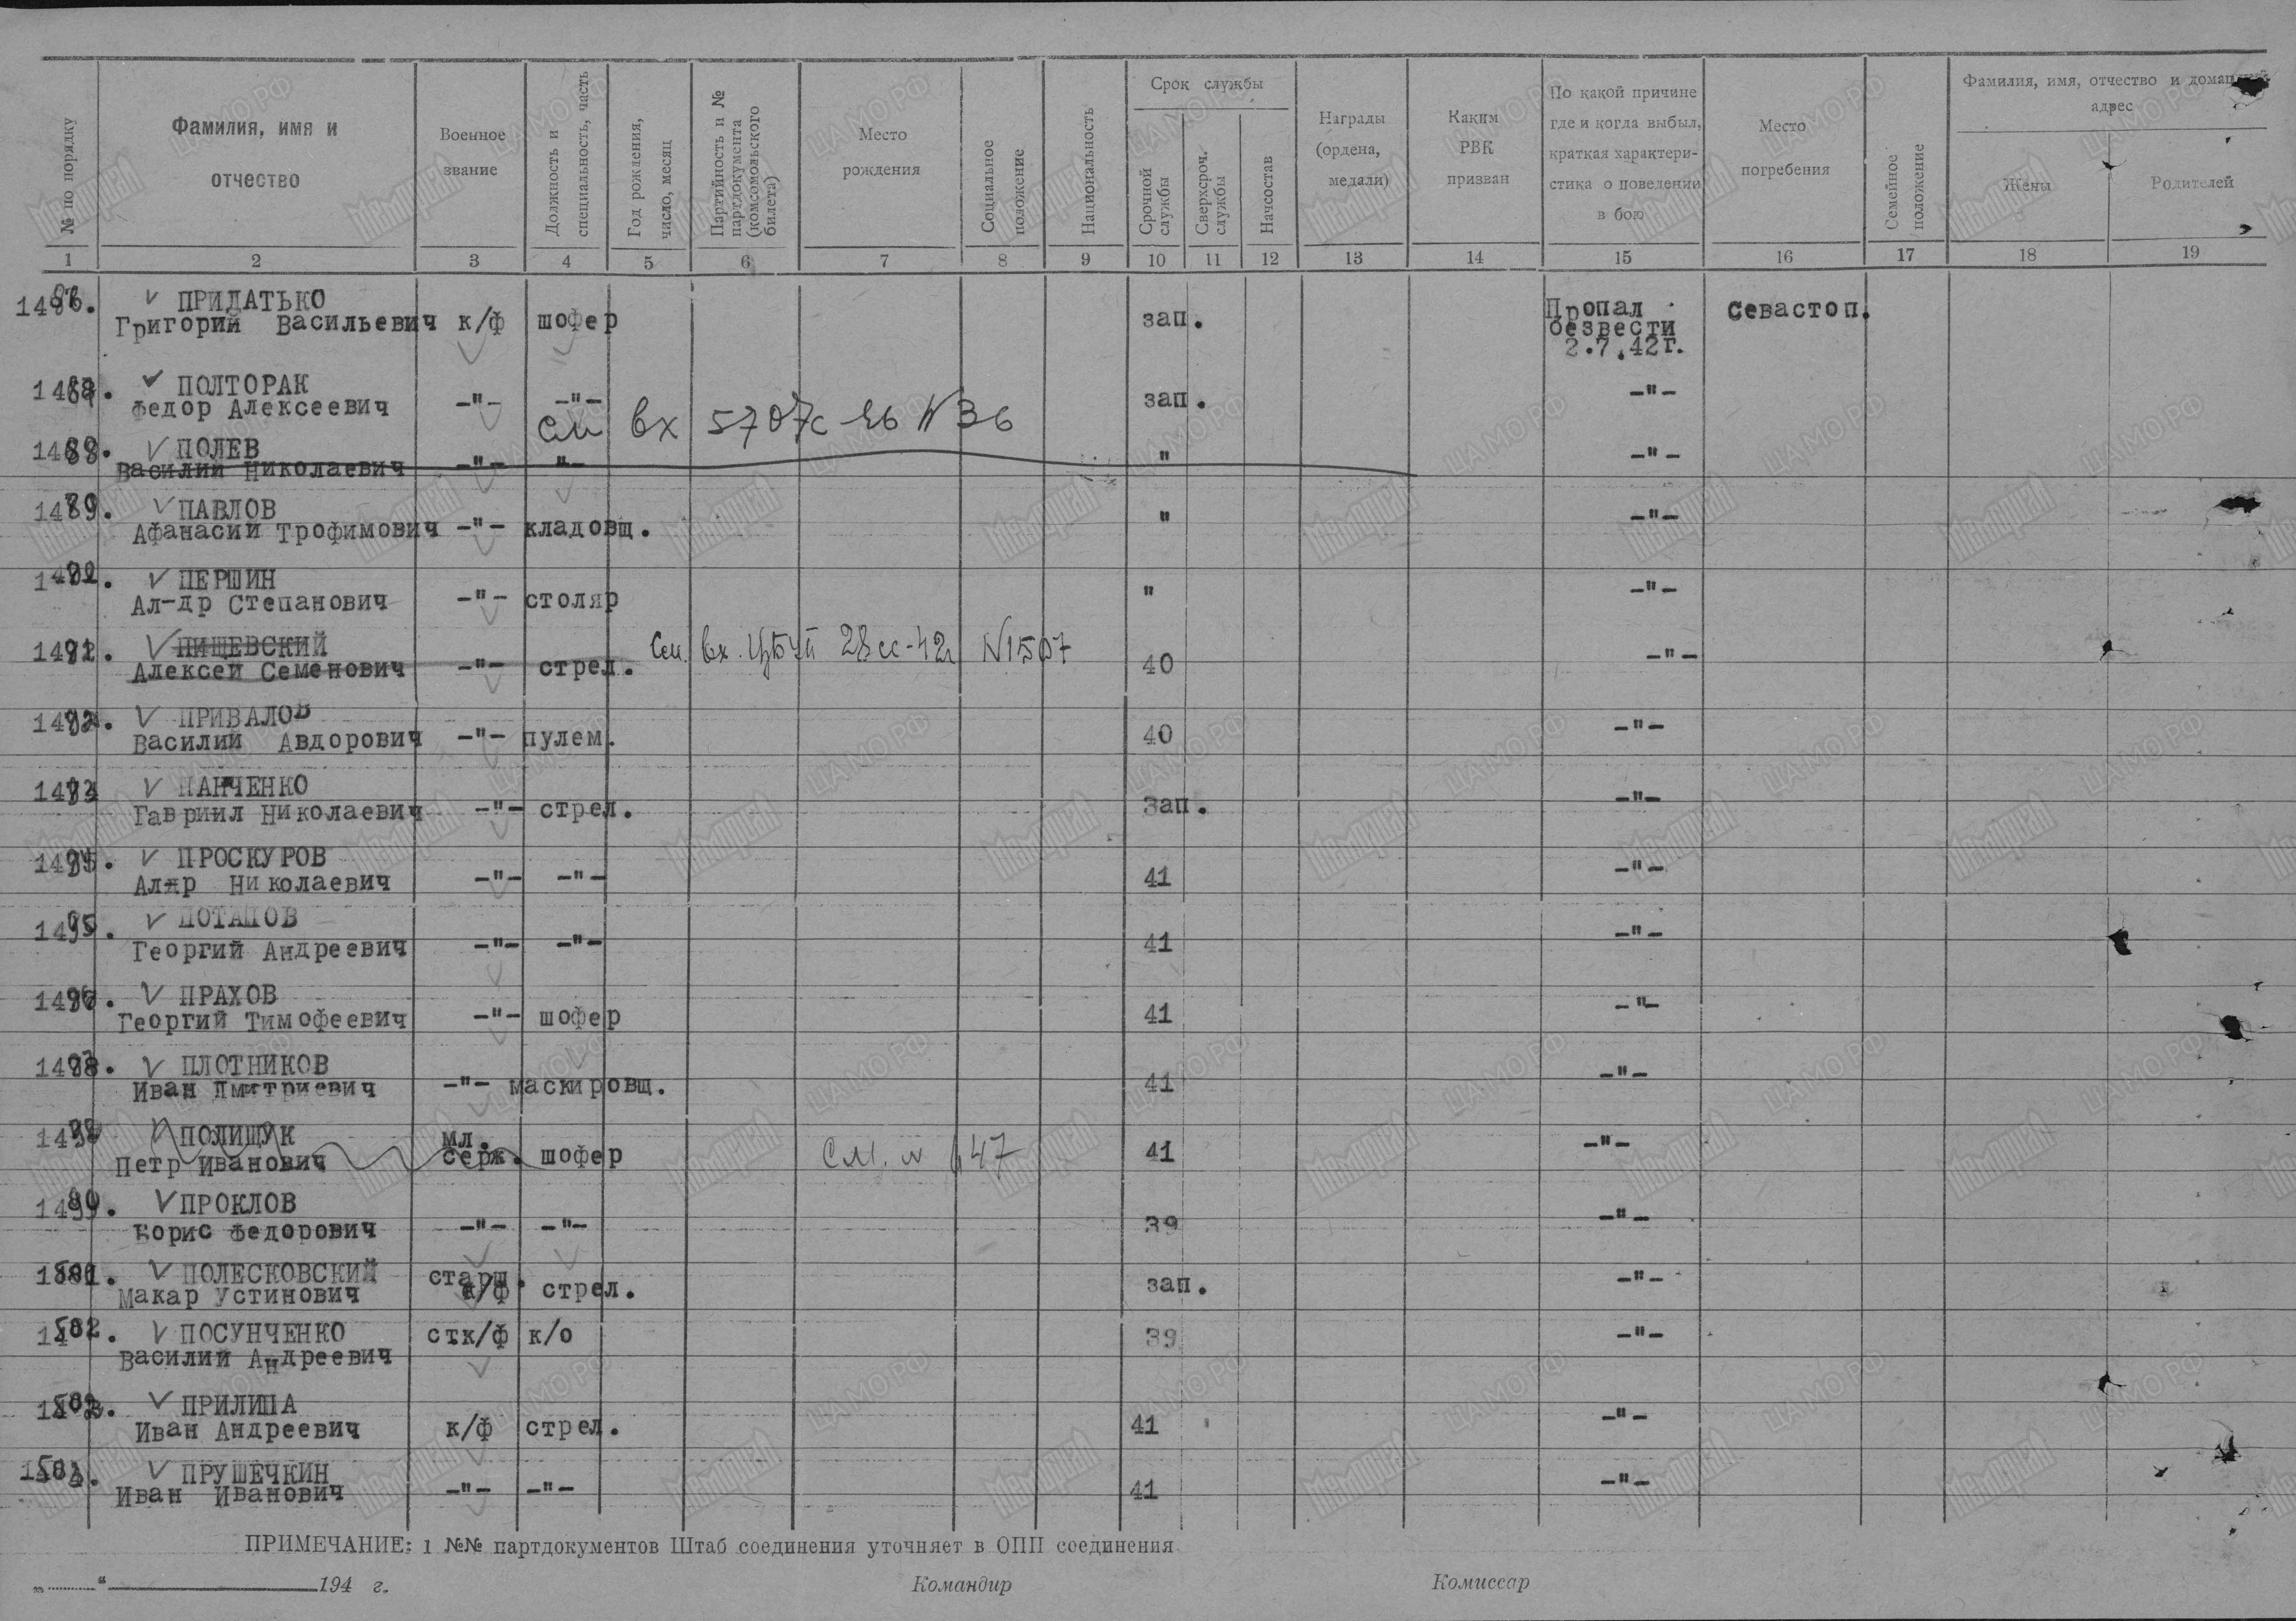 № по порядку
Фамилия, имя и
отчество
Военное
звание
Должность и
специальность, часть
Год рождения,
число, месяц
Партийность и №
партдокумента
(комсомольского
билета)
Место
рождения
Социальное
положение
Национальность
Срок службы
Срочной
службы
Сверхсроч.
службы
Начсостав
Награды
(ордена,
медали)
Каким
РВК
призван
По какой причине
где и когда выбыл,
краткая характери-
стика о поведении
в бою
Место
погребения
Семейное
положение
Фамилия, имя, отчество и домашний
адрес
Жены
Родителей
1 2 3 4 5 6 7 8 9 10 11 12 13 14 15 16 17 18 19
ПРИДАТЬКО
Григорий Васильевич к/ф шофер зап. Пропал безвести 2.7.42г. Севастоп.
ПОЛТОРАК
Федор Алексеевич -"- -"- зап. -"-
См вх 5707с
ПОЛЕВ
Василий Николаевич -"- "- " -"-
ПАВЛОВ
Афанасий Трофимович -"- кладовщ. " -"-
ПЕРШИН
Ал-др Степанович -"- столяр " -"-
ПИЩЕВСКИЙ См. вх. 28сс-42г N1507
Алексей Семенович -"- стрел. 40 -"-
ПРИВАЛОВ
Василий Авдорович -"- пулем. 40 -"-
ПАНЧЕНКО
Гавриил Николаевич -"- стрел. Зап. -"-
ПРОСКУРОВ
Алдр Николаевич -"- -"- 41 -"-
1495. ПОТАПОВ
Георгий Андреевич -"- -"- 41 -"-
ПРАХОВ
Георгий Тимофеевич -"- шофер 41 -"-
ПЛОТНИКОВ
Иван Дмитриевич -"- маскировщ. 41 -"-
ПОЛИЩУК
Петр Иванович мл. серж. шофер См. N 647 41 -"-
ПРОКЛОВ
Борис Федорович -"- -"- 39 -"-
ПОЛЕСКОВСКИЙ
Макар Устинович старш. к/ф стрел. зап. -"-
ПОСУНЧЕНКО стк/ф к/о 39 -"-
Василий Андреевич
ПРИЛИПА
Иван Андреевич к/ф стрел. 41 -"-
ПРУШЕЧКИН
Иван Иванович -"- -"- 41 -"-
ПРИМЕЧАНИЕ: 1 №№ партдокументов Штаб соединения уточняет в ОПП соединения
„ “ 194 г. Командир Комиссар